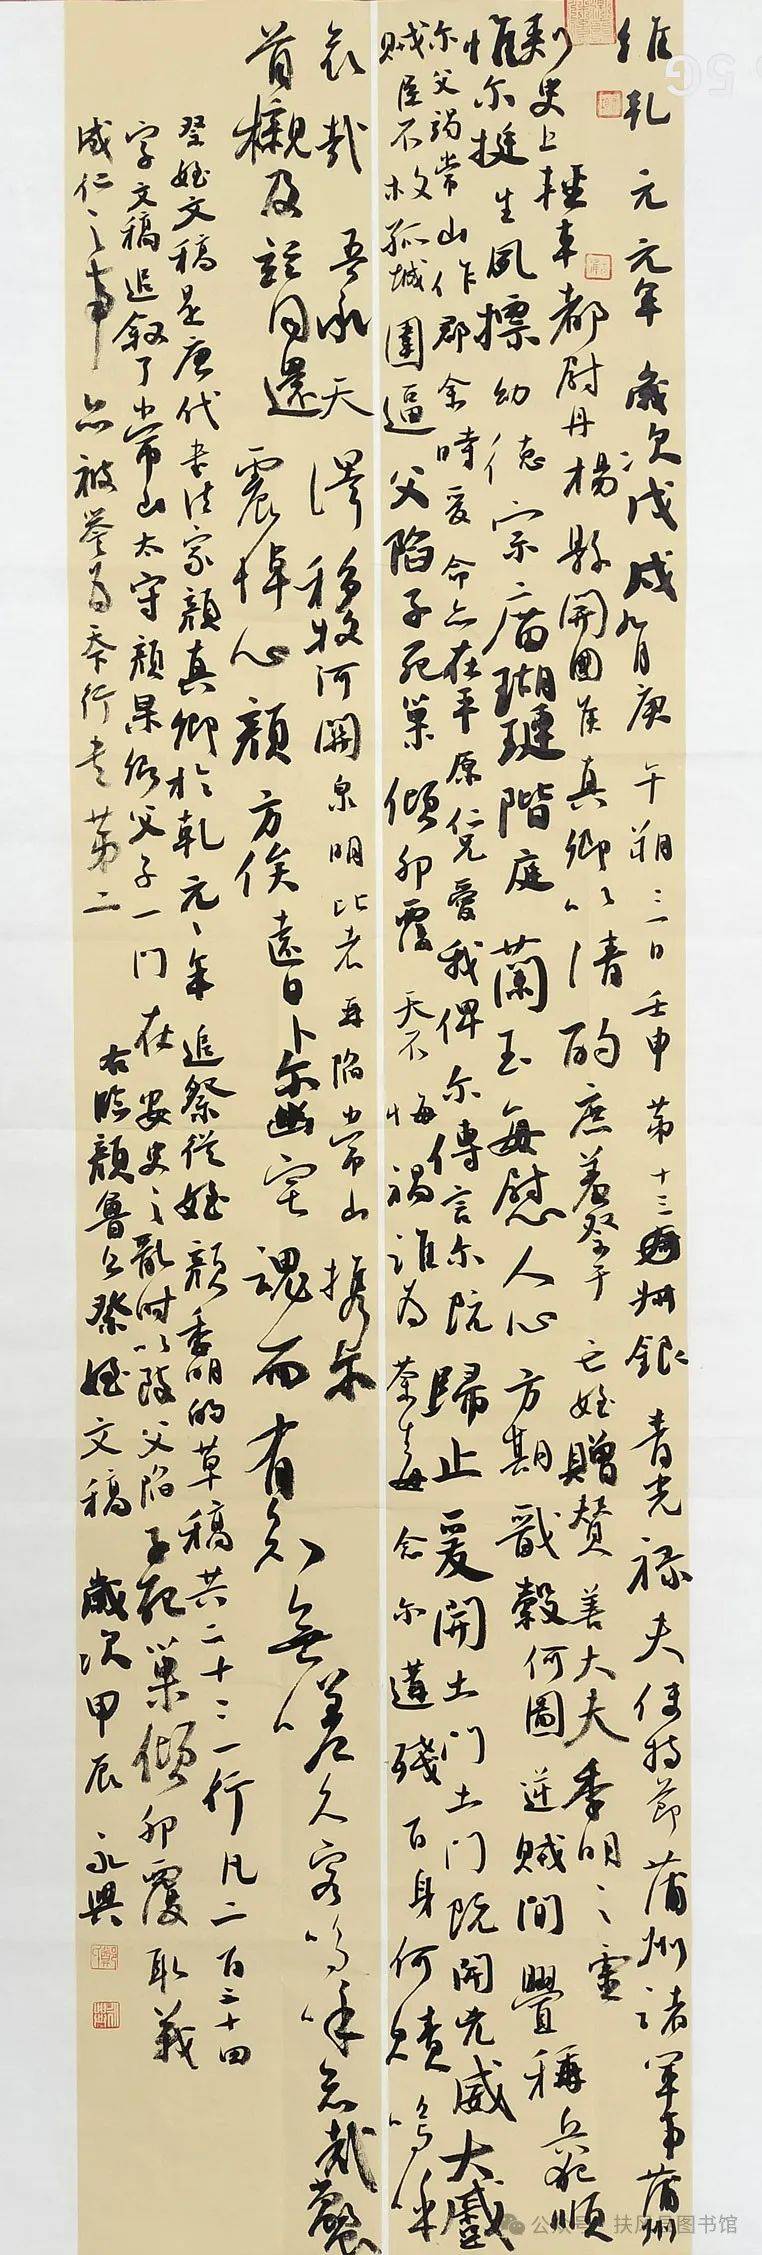 維乾元元年歲次戊戌九月庚午朔三日壬申第十三叔銀青光祿夫使持節蒲州諸軍事蒲州
刺史上輕車都尉丹楊縣開國侯真卿以清酌庶羞祭于亡姪贈贊善大夫季明之靈
惟尔挺生夙標幼德宗廟瑚璉階庭蘭玉每慰人心方期戩穀何圖逆賊間釁稱兵犯順
尔父竭常山作郡余時受命亦在平原仁兄愛我俾尔傳言尔既歸止爰開土門土門既開兇威大蹙
賊臣不救孤城圍逼父陷子死巢傾卵覆天不悔禍誰為荼毒念尔遘殘百身何贖嗚呼
哀哉吾承天澤移牧河關泉明比者再陷常山攜尔
首櫬及茲同還震悼心顏方俟遠日卜尔幽宅魂而有知無嗟久客嗚呼哀哉尚饗
祭姪文稿是唐代書法家顏真卿於乾元元年追祭從姪顏季明的草稿共二十三行凡二百三十四
字文稿追叙了常山太守顏杲卿父子一門在安史之亂時以致父陷子死巢傾卵覆取義
成仁之事亦被譽為天下行書第二
右臨顏魯公祭姪文稿 歲次甲辰 永興
公众号·扶风县图书馆